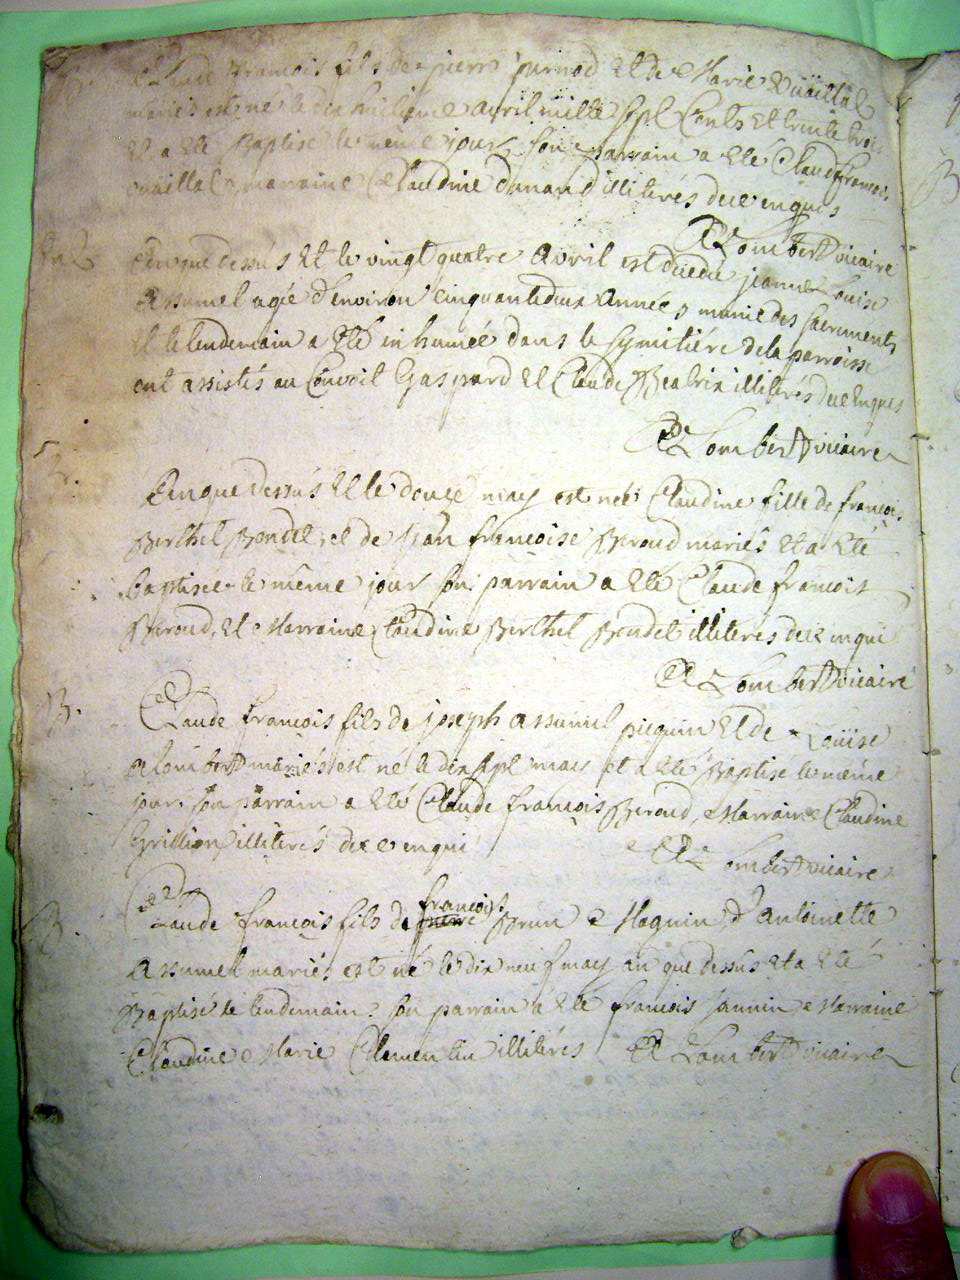 B. Claude François fils de pierre purnod et de Marie Vuaillat
mariés est né le dix huitieme avril mille sept Cents et trente trois
et a eté Baptisé le même jour, son parrain a eté Claude françois
vuaillat marraine Claudine danand illiterés de ce enquis
A Lombert vicaire
L'an que dessus et le vingt quatre avril est decedé jeanne Louise
Assumel agée d'environ cinquante deux Années munie des sacrements
et le lendemain a eté inhumée dans le symitière de la parroisse
ont assistés au Convoit Gaspard et Claude Beatrix illiterés de ce enquis
A Lombert vicaire
L'an que dessus et le douze may est née Claudine fille de françois
Berthet Bondet, et de jean françoise Beroud mariés et a eté
baptisée le même jour son parrain a eté Claude françois
Beroud, et Marraine Claudine Berthet Bondet illiterés de ce enqui
A Lombert vicaire
B. Claude françois fils de joseph assumel puquin et de Louise
Alombert mariés est né le dix sept may et a eté Baptisé le même
jour. son parrain a eté Claude françois Beroud, Marraine Claudine
Grillion, illiterés de ce enqui
A Lombert vicaire
B. Claude françois fils de françois Brun Maquin, d'Antoinette
Assumel mariés est né le dix neuf may an que dessus et a eté
Baptisé le lendemain. son parrain a eté françois jannin Marraine
Claudine Marie Clementin illiterés A Lombert vicaire